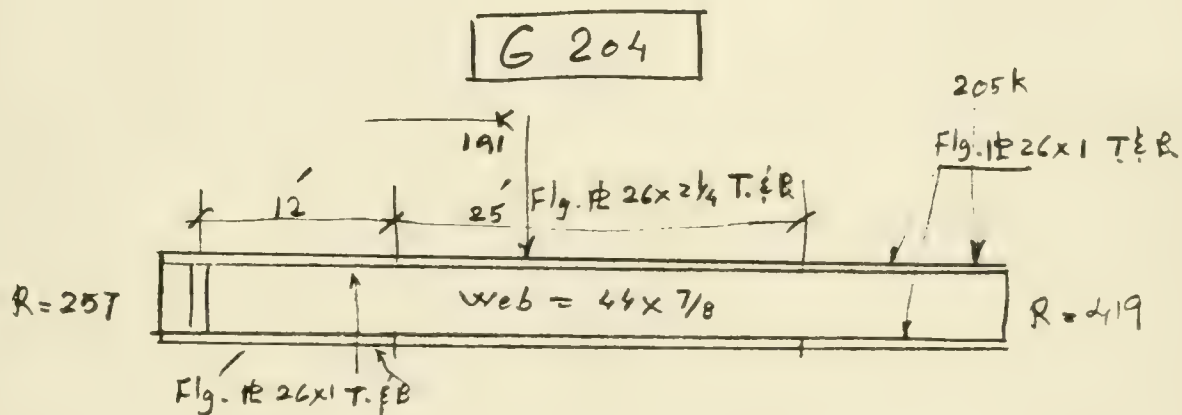 G 204
205k
191 k
Flg. PL 26x1 T. & B.
12'
25'
Flg. PL 26x2 1/4 T. & B
R=257
Web = 44 x 7/8
R=419
Flg. PL 26x1 T. & B